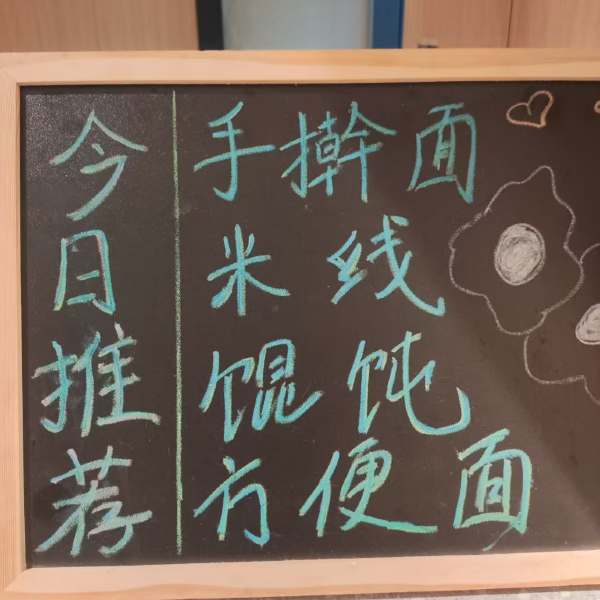 今日推荐
手擀面
米线
馄饨
方便面